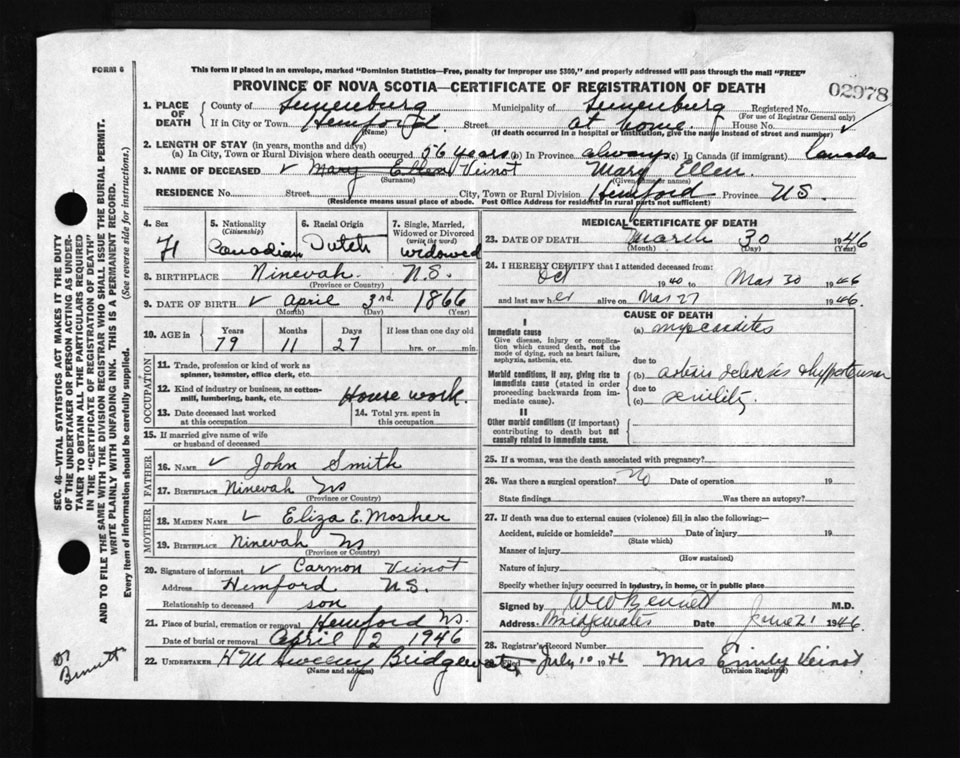 FORM 6
This form if placed in an envelope, marked "Dominion Statistics—Free, penalty for improper use $300," and properly addressed will pass through the mail "FREE"
PROVINCE OF NOVA SCOTIA—CERTIFICATE OF REGISTRATION OF DEATH
02978
1. PLACE OF DEATH
County of Lunenburg Municipality of Lunenburg Registered No.
(For use of Registrar General only)
If in City or Town Hemford Street at home. House No.
(Name) (If death occurred in a hospital or institution, give the name instead of street and number)
2. LENGTH OF STAY (in years, months and days)
(a) In City, Town or Rural Division where death occurred 56 years (b) In Province always (c) In Canada (if immigrant) Canada
3. NAME OF DECEASED Mary Ellen Veinot Mary Ellen.
(Surname) (Given or other names)
RESIDENCE No. Street City, Town or Rural Division Hemford Province NS.
(Residence means usual place of abode. Post Office Address for residents in rural parts not sufficient)
4. Sex
F
5. Nationality
(Citizenship)
Canadian
6. Racial Origin
Dutch
7. Single, Married, Widowed or Divorced
(write the word)
Widowed
8. BIRTHPLACE Ninevah. N.S.
(Province or Country)
9. DATE OF BIRTH April 3rd 1866
(Month) (Day) (Year)
10. AGE in
Years Months Days If less than one day old
79 11 27 hrs. or min.
OCCUPATION
11. Trade, profession or kind of work as
spinner, teamster, office clerk, etc.
12. Kind of industry or business, as cotton-
mill, lumbering, bank, etc. House work.
13. Date deceased last worked
at this occupation
14. Total yrs. spent in
this occupation
15. If married give name of wife
or husband of deceased
FATHER
16. NAME John Smith
17. BIRTHPLACE Ninevah NS
(Province or Country)
MOTHER
18. MAIDEN NAME Eliza E. Mosher
19. BIRTHPLACE Ninevah NS
(Province or Country)
20. Signature of informant Carmon Veinot
Address Hemford N.S.
Relationship to deceased son
21. Place of burial, cremation or removal Hemford NS.
Date of burial or removal April 2 1946
22. UNDERTAKER H M Sweeny Bridgewater
(Name and address)
MEDICAL CERTIFICATE OF DEATH
23. DATE OF DEATH March 30 1946
(Month) (Day) (Year)
24. I HEREBY CERTIFY that I attended deceased from:
Oct 1940 to Mar 30 1946
and last saw her alive on Mar 27 1946.
CAUSE OF DEATH
I
Immediate cause (a) myocarditis
Give disease, injury or complication which caused death, not the mode of dying, such as heart failure, asphyxia, asthenia, etc.
due to
Morbid conditions, if any, giving rise to immediate cause (stated in order proceeding backwards from immediate cause).
(b) arterio sclerosis & hypertension
due to
(c) senility
II
Other morbid conditions (if important) contributing to death but not causally related to immediate cause.
25. If a woman, was the death associated with pregnancy?
26. Was there a surgical operation? No Date of operation 19
State findings Was there an autopsy?
27. If death was due to external causes (violence) fill in also the following:—
Accident, suicide or homicide? Date of injury 19
(State which)
Manner of injury
(How sustained)
Nature of injury
Specify whether injury occurred in industry, in home, or in public place
Signed by W W Bennett M.D.
Address Bridgewater Date June 21 1946.
28. Registrar's Record Number
Filed July 10 1946 Mrs Emily Veinot
(Division Registrar)
SEC. 46—VITAL STATISTICS ACT MAKES IT THE DUTY
OF THE UNDERTAKER OR PERSON ACTING AS UNDER-
TAKER TO OBTAIN ALL THE PARTICULARS REQUIRED
IN THE "CERTIFICATE OF REGISTRATION OF DEATH"
AND TO FILE THE SAME WITH THE DIVISION REGISTRAR WHO SHALL ISSUE THE BURIAL PERMIT.
WRITE PLAINLY WITH UNFADING INK. THIS IS A PERMANENT RECORD.
Every item of information should be carefully supplied. (See reverse side for instructions.)
Dr Bennett